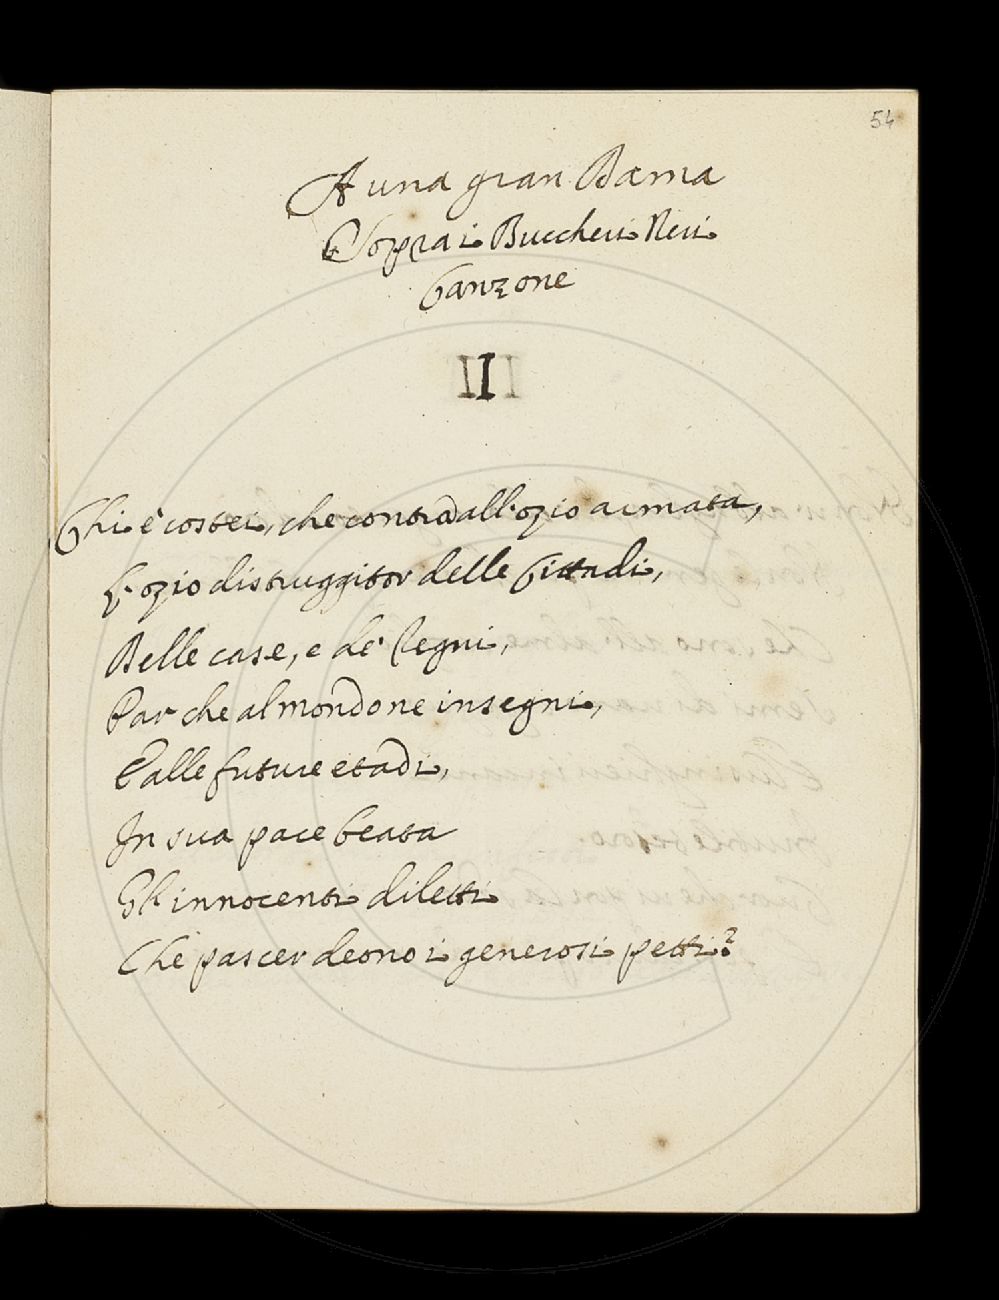 54
A una gran Dama
Sopra i Buccheri Neri
Canzone
II
Chi è costei, che contro all'ozio armata,
L'ozio distruggitor delle Cittadi,
Delle case, e de' Regni,
Par che al mondo ne insegni,
E alle future etadi,
In sua pace beata
Gli innocenti diletti
Che pascer deono i generosi petti?